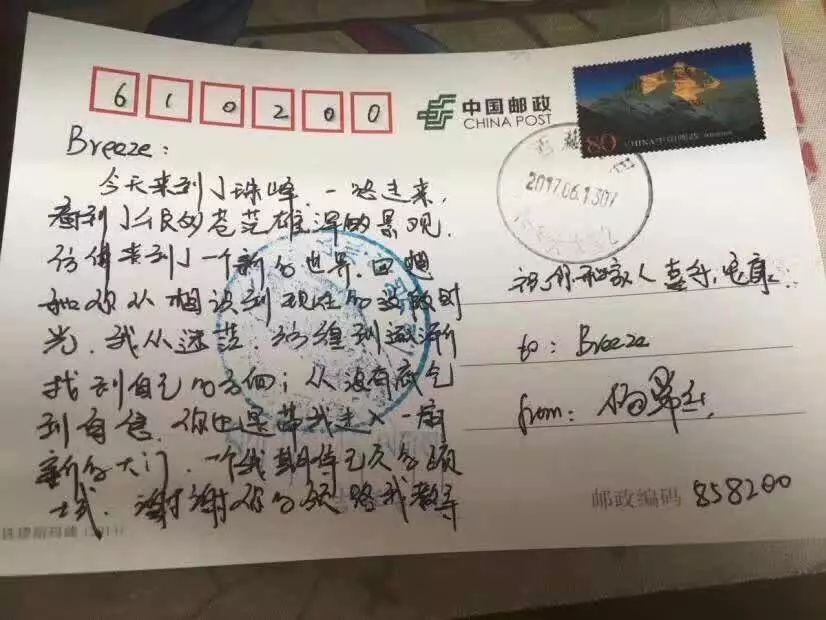 610200
中国邮政
CHINA POST
80
CHINA 中国邮政
2017.06.13.07
Breeze:
今天来到了珠峰,一路走来,
看到了不少的苍茫雄浑的景观,
仿佛来到了一个新的世界.回想
和你从相识到现在的这段时
光,我从迷茫、彷徨到逐渐
找到自己的方向;从没有底气
到自信.你也是带我走入一扇
新的大门,一个我期待已久的
谢谢你的领路和教导
祝你和家人喜乐,安康.
to: Breeze
from: 杨
邮政编码 858200